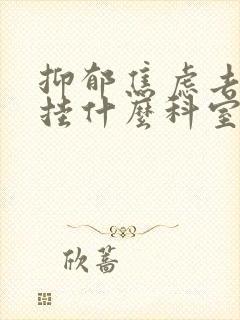 抑郁焦虑去
挂什麼科室
欣蔷